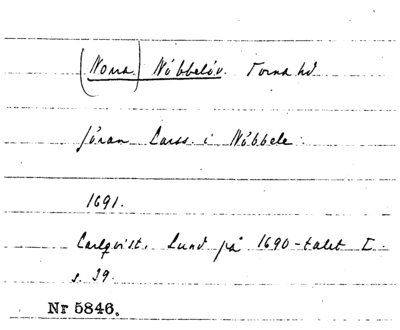 (Norra) Nöbbelöv. Torna hd
Jöran Larss. i Nöbbele.
1691.
Carlqvist, Lund på 1690-talet I.
s. 39.
Nr 5846.